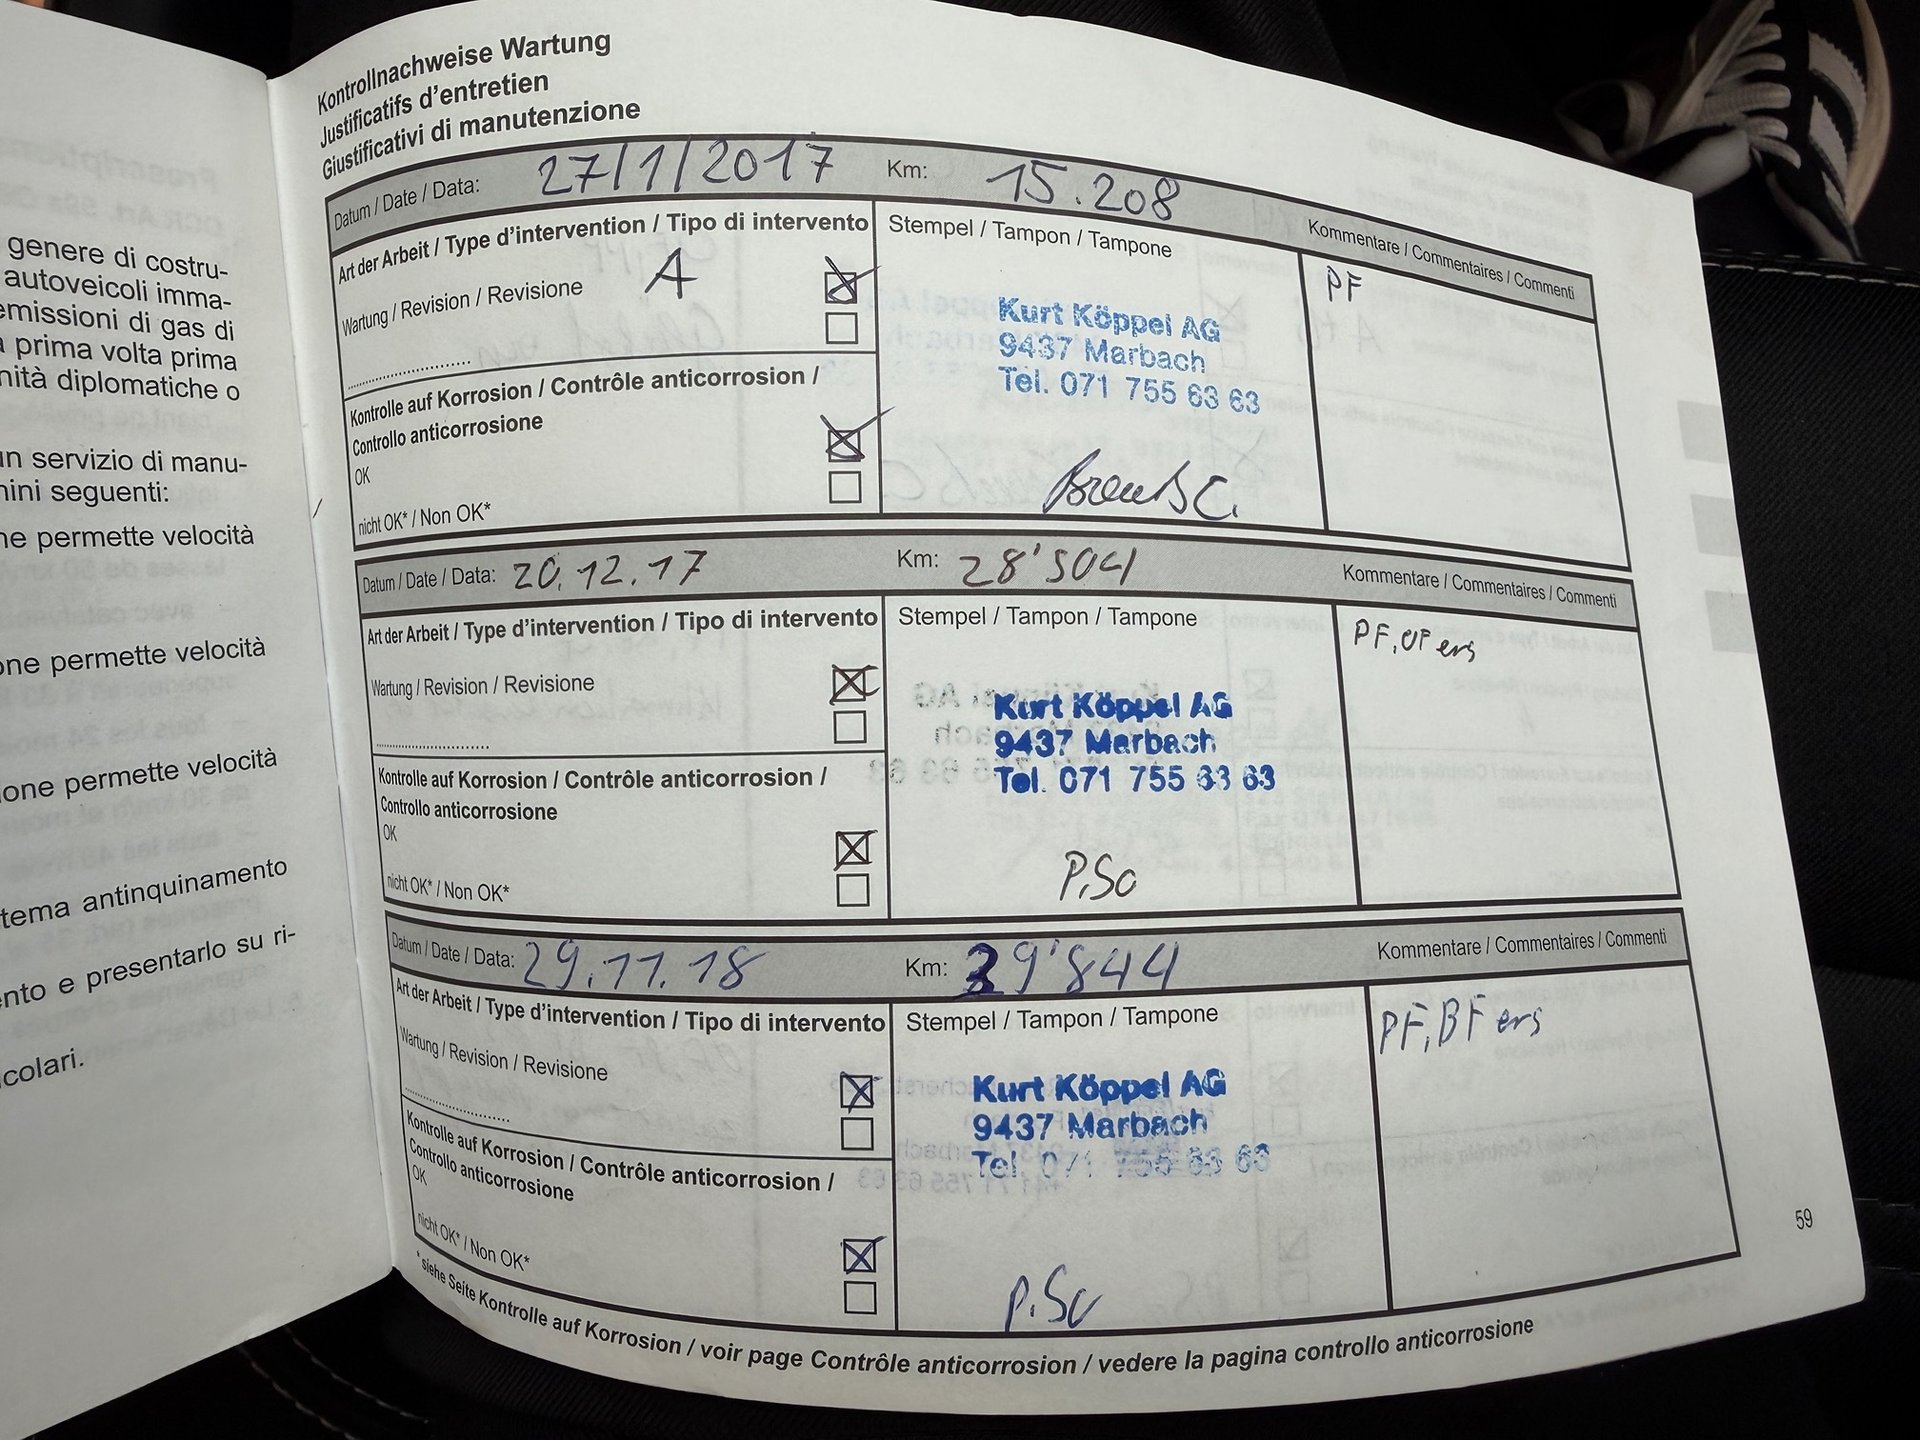 genere di costru-
autoveicoli imma-
emissioni di gas di
a prima volta prima
nità diplomatiche o
un servizio di manu-
nini seguenti:
ne permette velocità
one permette velocità
ione permette velocità
tema antinquinamento
ento e presentarlo su ri-
icolari.
Kontrollnachweise Wartung
Justificatifs d'entretien
Giustificativi di manutenzione
Datum / Date / Data: 27/1/2017 Km: 15.208 Kommentare / Commentaires / Commenti
Art der Arbeit / Type d'intervention / Tipo di intervento Stempel / Tampon / Tampone PF
Wartung / Revision / Revisione A
Kurt Köppel AG
9437 Marbach
Tel. 071 755 63 63
Kontrolle auf Korrosion / Contrôle anticorrosion /
Controllo anticorrosione
OK
nicht OK* / Non OK*
Datum / Date / Data: 20.12.17 Km: 28'504 Kommentare / Commentaires / Commenti
Art der Arbeit / Type d'intervention / Tipo di intervento Stempel / Tampon / Tampone PF, OF ers
Wartung / Revision / Revisione
Kurt Köppel AG
9437 Marbach
Tel. 071 755 63 63
Kontrolle auf Korrosion / Contrôle anticorrosion /
Controllo anticorrosione
OK
nicht OK* / Non OK* P.So
Datum / Date / Data: 29.11.18 Km: 39'844 Kommentare / Commentaires / Commenti
Art der Arbeit / Type d'intervention / Tipo di intervento Stempel / Tampon / Tampone PF, BF ers
Wartung / Revision / Revisione
Kurt Köppel AG
9437 Marbach
Tel. 071 755 63 63
Kontrolle auf Korrosion / Contrôle anticorrosion /
Controllo anticorrosione
OK
nicht OK* / Non OK* P.So
*siehe Seite Kontrolle auf Korrosion / voir page Contrôle anticorrosion / vedere la pagina controllo anticorrosione
59